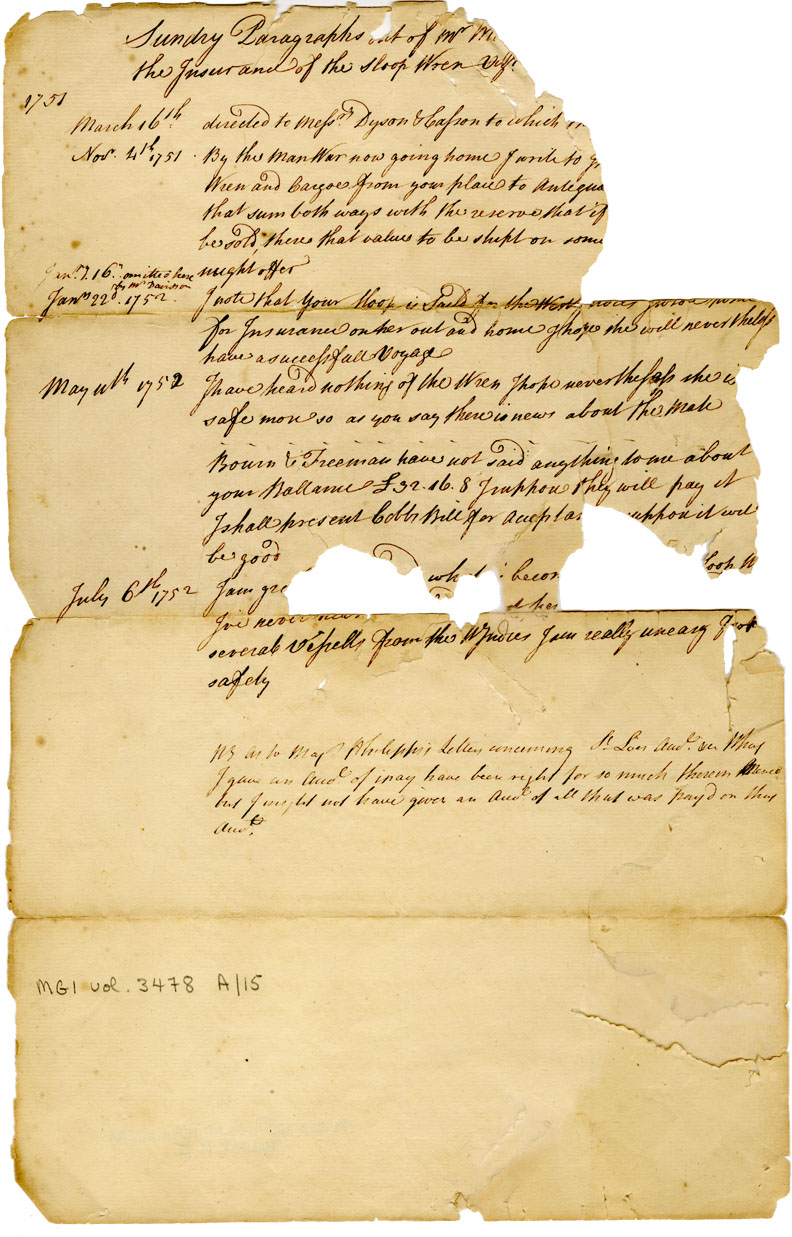 Sundry Paragraphs out of Mr
the Insurance of the Sloop Wren
1751
March 16th. directed to Messrs Dyson & Casson to which
Nov. 4th. 1751. By the Man War now going home I write to
Wren and Cargoe from your place to Antegua
that sum both ways with the reserve that if
be sold, there that value to be shipt on some
Janry. 16th omitted here
by Mr Davidson
might offer
Janry 22d. 1752. I note that your sloop is Saild for the West
for Insurance on her out and home I hope she will nevertheless
have a successfull Voyage
May 11th 1752 I have heard nothing of the Wren I hope nevertheless she is
safe more so as you say there is news about the Mate
Bourn & Freeman have not said anything to me about
your Ballance £32.16.8 I suppose they will pay it
I shall present Cobbs Bill for suppose it will
be good
July 6th 1752 I am becom
I've never
several Vessells from the Wt Indies I am really uneasy for
safety
NB as to Letter concerning
I gave an of may have been right for so much therein
but I might not have given an of all that was payd on that
MG1 vol. 3478 A/15